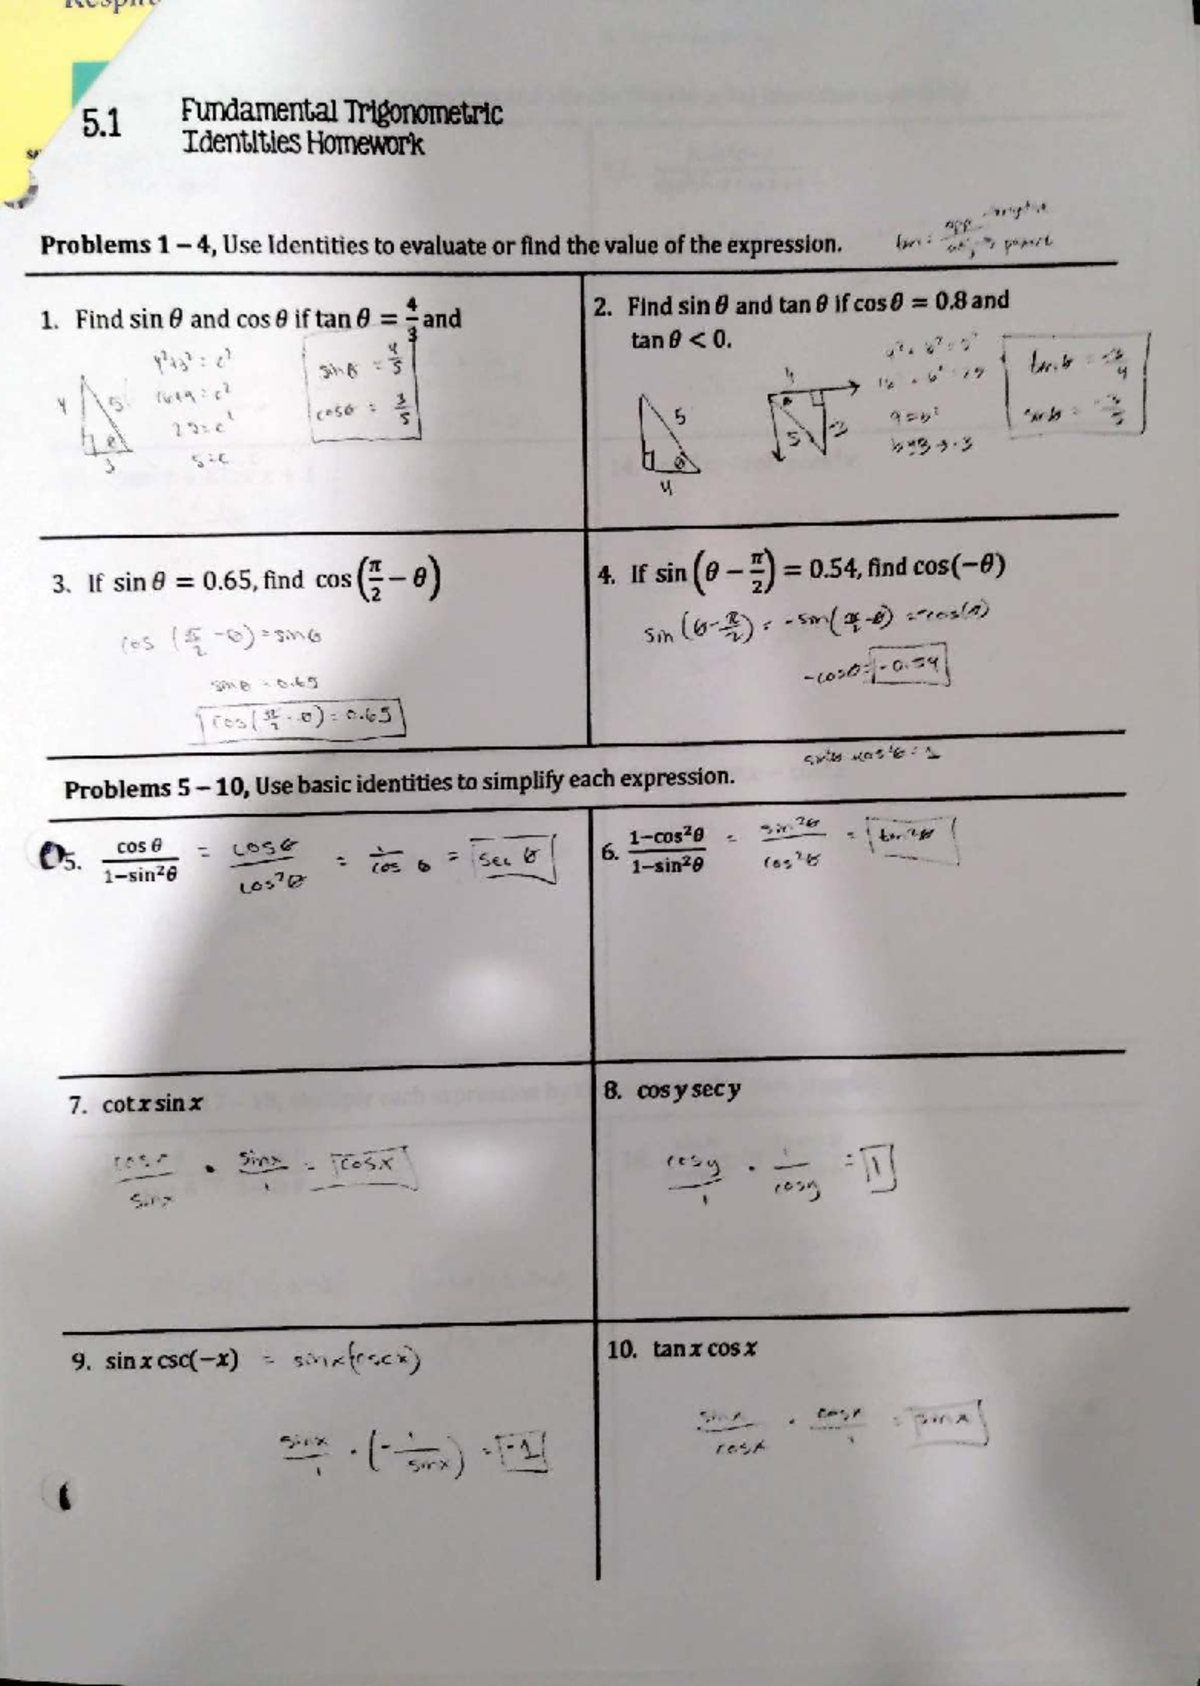 5.1 Fundamental Trigonometric
Identities Homework
Problems 1 – 4, Use Identities to evaluate or find the value of the expression.
1. Find sin θ and cos θ if tan θ = 4/3 and
4²+3²=c²
16+9=c²
25=c²
5=c
4
5
θ
3
sinθ = 4/5
cosθ = 3/5
2. Find sin θ and tan θ if cos θ = 0.8 and
tan θ < 0.
5
θ
4
4
5
-3
4² + b² = 5²
9=b²
tanθ = -3/4
sinθ = -3/5
3. If sin θ = 0.65, find cos (π/2 − θ)
cos (π/2 -θ)=sinθ
sinθ = 0.65
cos(π/2 - θ)=0.65
4. If sin (θ − π/2) = 0.54, find cos(−θ)
sin (θ-π/2) = -sin(π/2-θ) = -cos(θ)
-cosθ= -0.54
Problems 5 – 10, Use basic identities to simplify each expression.
sin²θ +cos²θ = 1
5. cos θ/1−sin²θ = cosθ/cos²θ = 1/cos θ = sec θ
6. 1−cos²θ/1−sin²θ = sin²θ/cos²θ = tan²θ
7. cot x sin x
cosx/sinx · sinx/1 = cosx
8. cos y sec y
cosy/1 · 1/cosy = 1
9. sin x csc(−x) = sinx(-cscx)
sinx/1 · (-1/sinx) = -1
10. tan x cos x
sinx/cosx · cosx/1 = sinx